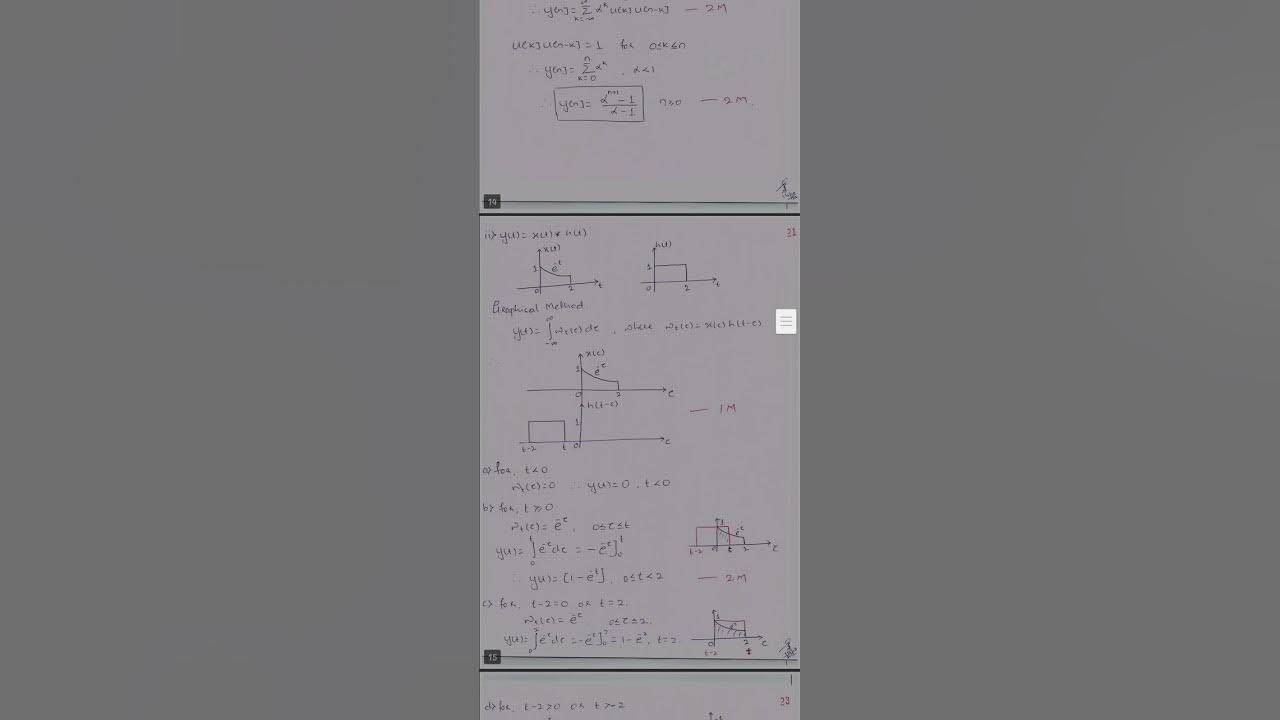 ∴ y[n] = Σ k=-∞ α^k u[k] u[n-k] — 2M
u[k] u[n-k] = 1 for 0≤k≤n
∴ y[n] = Σ_{k=0}^{n} α^k , α<1
∴ y[n] = (α^{n+1} - 1)/(α - 1) n≥0 — 2M.
14
ii) y(t) = x(t) * h(t)
21
x(t) h(t)
1 e^{-t} 1
0 2 t 0 2 t
Graphical Method
y(t) = ∫_{-∞}^{∞} w_t(τ) dτ , where w_t(τ) = x(τ) h(t-τ)
x(τ)
1 e^{-τ}
0 2 τ
h(t-τ) — 1M
1
t-2 t 0 τ
a) for, t<0
w_t(τ) = 0 ∴ y(t) = 0 , t<0
b) for, t≥0
w_t(τ) = e^{-τ} , 0≤τ≤t
1 e^{-τ}
t-2 0 t 2 τ
y(t) = ∫_0^t e^{-τ} dτ = -e^{-τ}]_0^t
∴ y(t) = [1-e^{-t}] , 0≤t<2 — 2M
c) for, t-2=0 or t=2.
w_t(τ) = e^{-τ} 0≤τ≤2.
1
0 2 τ
t-2 t
y(t) = ∫_0^2 e^{-τ} dτ = -e^{-τ}]_0^2 = 1-e^{-2}, t=2.
15
23
d) for, t-2>0 or t>2